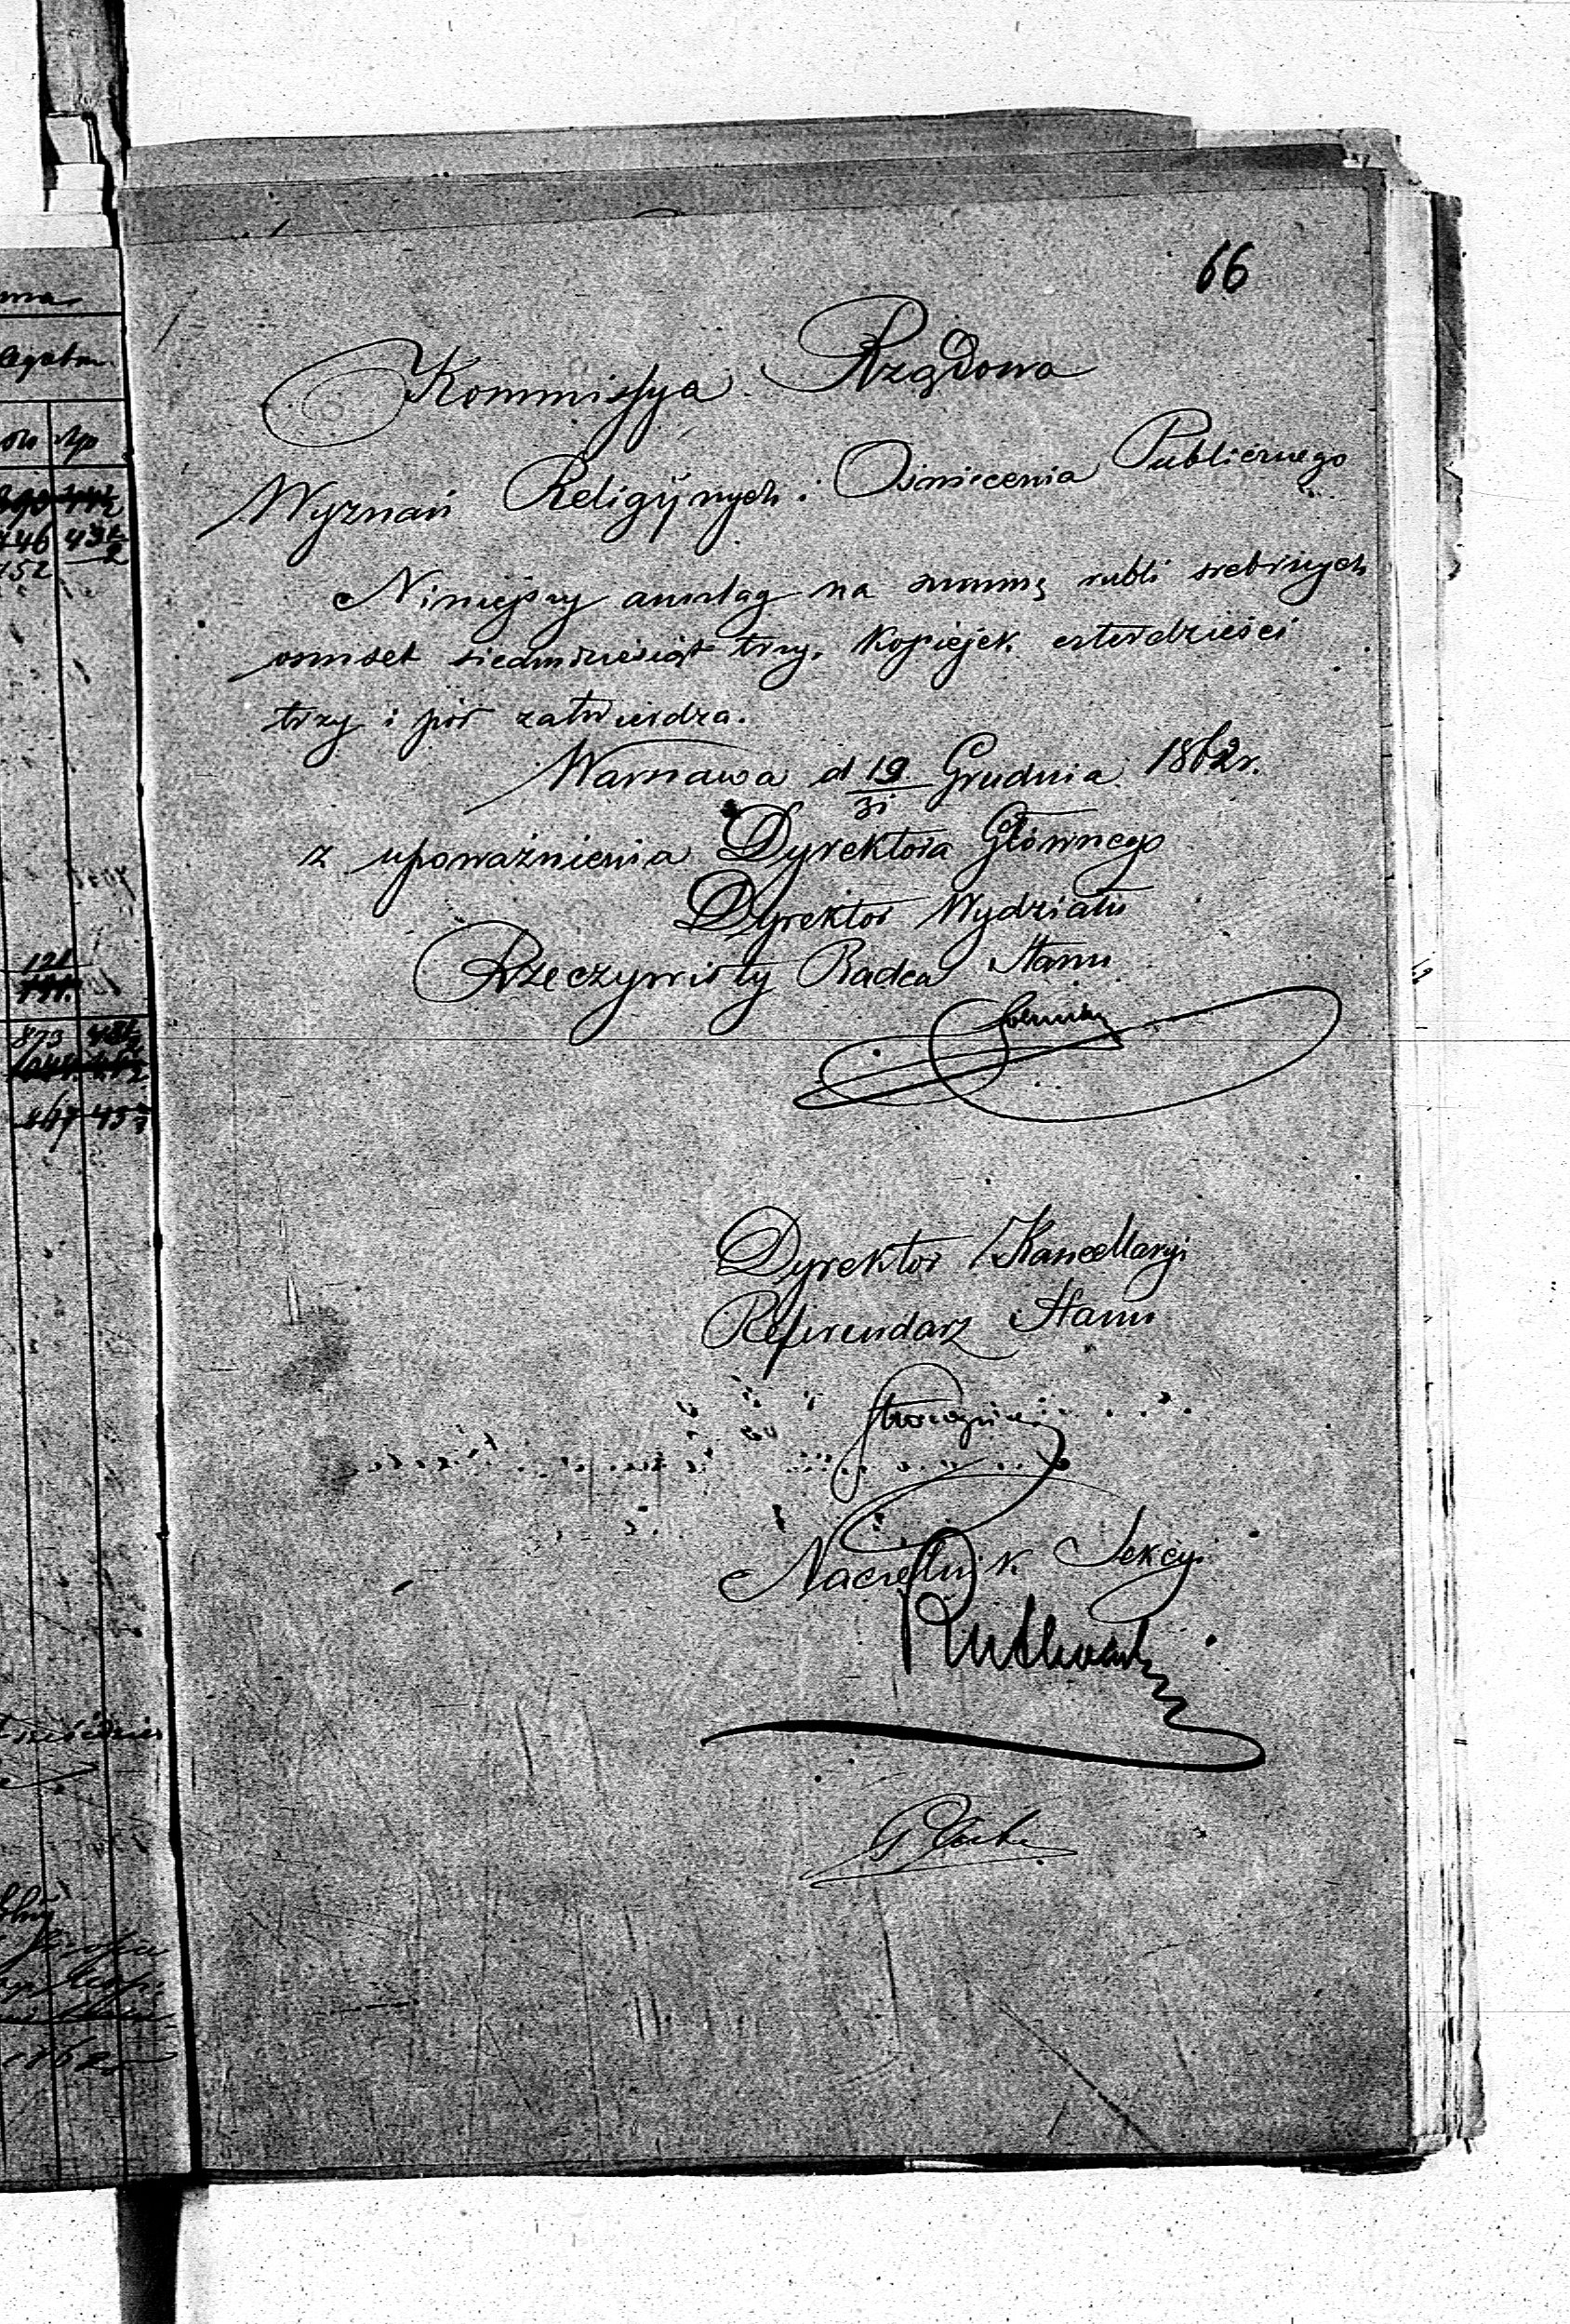 66
Kommissya Rządowa
Wyznań Religijnych i Oświecenia Publicznego
Niniejszy anszlag na summę rubli srebrnych
ośmset siedmdziesiąt trzy, kopiejek czterdzieści
trzy i pół zatwierdza.
Warszawa d 19/31 Grudnia 1862 r.
z upoważnienia Dyrektora Głównego
Dyrektor Wydziału
Rzeczywisty Radca Stanu
Dyrektor Kancellaryi
Referendarz Stanu
Naczelnik Sekcyi
Rutkowski
446 43½
752
121
873 43½
1862